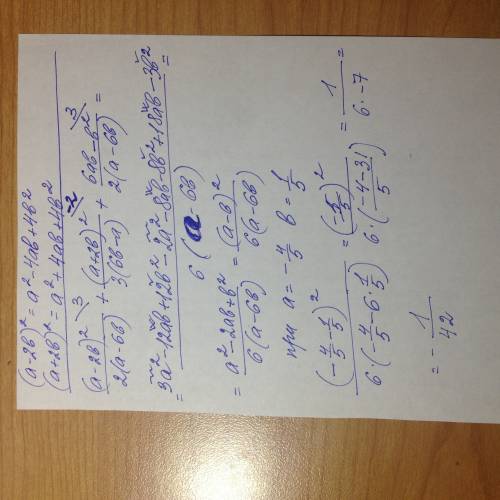 (a-2b)² = a² - 4ab + 4b²
(a+2b)² = a² + 4ab + 4b²
(a-2b)²/2(a-6b) \3 + (a+2b)²/3(6b-a) \-2 + 6ab-b²/2(a-6b) \3 =
= 3a² - 12ab + 12b² - 2a² - 8ab - 8b² + 18ab - 3b²/6(a-6b) =
= a² - 2ab + b²/6(a-6b) = (a-b)²/6(a-6b)
при a = -4/5 b = 1/5
(-4/5 - 1/5)²/6·(-4/5 - 6·1/5) = (-5/5)²/6·(-4-31/5) = 1/6·-7 =
= -1/42